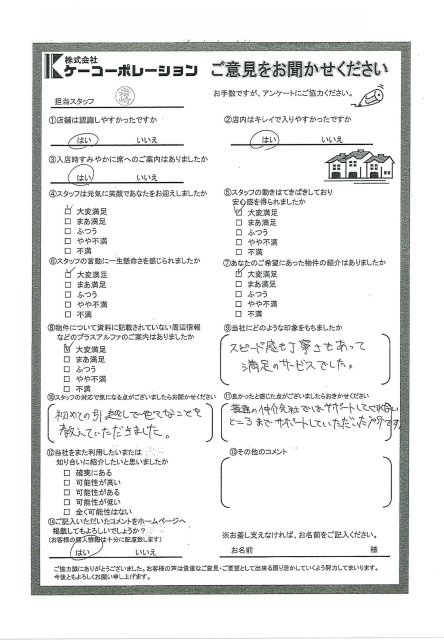 株式会社
ケーコーポレーション ご意見をお聞かせください
担当スタッフ
お手数ですが、アンケートにご協力ください。
①店舗は認識しやすかったですか
はい いいえ
②店内はキレイで入りやすかったですか
はい いいえ
③入店時すみやかに席へのご案内はありましたか
はい いいえ
④スタッフは元気に笑顔であなたをお迎えしましたか
□ 大変満足
□ まあ満足
□ ふつう
□ やや不満
□ 不満
⑤スタッフの動きはてきぱきしており
安心感を得られましたか
☑ 大変満足
□ まあ満足
□ ふつう
□ やや不満
□ 不満
⑥スタッフの言動に一生懸命さを感じられましたか
☑ 大変満足
□ まあ満足
□ ふつう
□ やや不満
□ 不満
⑦あなたのご希望にあった物件の紹介はありましたか
☑ 大変満足
□ まあ満足
□ ふつう
□ やや不満
□ 不満
⑧物件について資料に記載されていない周辺情報
などのプラスアルファのご案内はありましたか
☑ 大変満足
□ まあ満足
□ ふつう
□ やや不満
□ 不満
⑨当社にどのような印象をもちましたか
スピード感も丁寧さもあって
満足のサービスでした。
⑩スタッフの対応で気になる点がございましたらお聞かせください
初めての引越しで色々なことを
教えていただきました。
⑪良かったと感じた点がございましたらおきかせください
普通の仲介会社ではサポートしてくれない
ところまでサポートしていただいた
⑫当社をまた利用したいまたは
知り合いに紹介したいと思いましたか
□ 確実にある
□ 可能性が高い
□ 可能性がある
□ 可能性が低い
□ 全く可能性はない
⑬その他のコメント
⑭ご記入いただいたコメントをホームページへ
掲載してもよろしいでしょうか?
(お客様の個人情報は十分に配慮致します)
はい いいえ
※お差し支えなければ、お名前をご記入ください。
お名前 様
ご協力誠にありがとうございました。お客様の声は貴重なご意見・ご要望として出来る限り活かしていくよう努力してまいります。
今後ともよろしくお願い申し上げます。